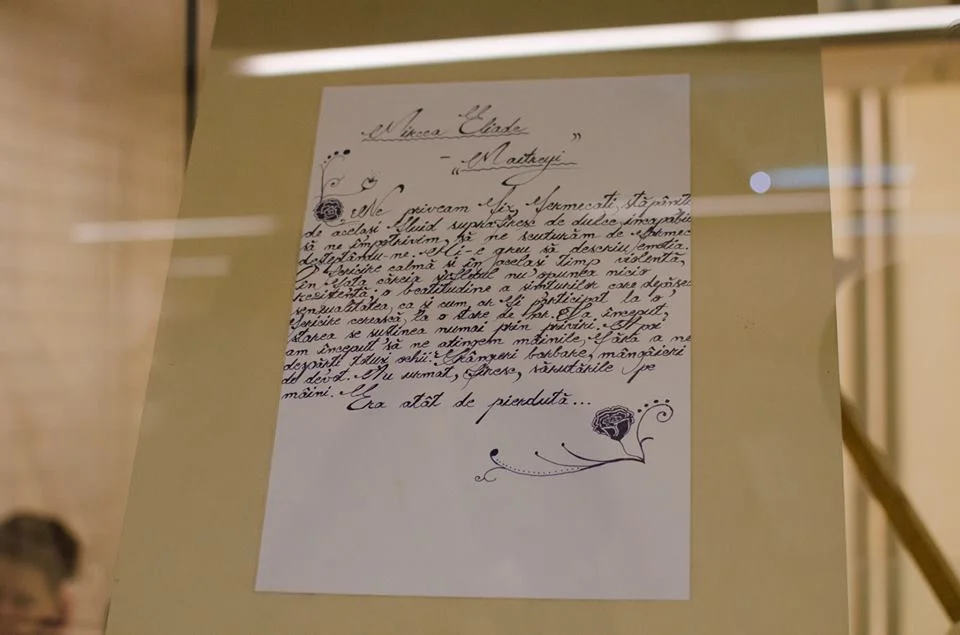 Mircea Eliade
- „Maitreyi”
Ne priveam fix, fermecați, stăpâniți
de același fluid supra-firesc de dulce, incapabili
să ne împotrivim, să ne scuturăm de farmec
deșteptându-ne. Mi-e greu să descriu emoția.
O fericire calmă și în același timp violentă,
în fața căreia sufletul nu opunea nicio
rezistență; o beatitudine a simțurilor care depășea
senzualitatea, ca și cum ar fi participat la o
fericire cerească, la o stare de har. La început,
starea se susținea numai prin priviri. Apoi
am început să ne atingem mâinile, fără a ne
despărți totuși ochii. Strângeri barbare, mângâieri
de devot. Au urmat, firesc, sărutările pe
mâini.
Era atât de pierdută...